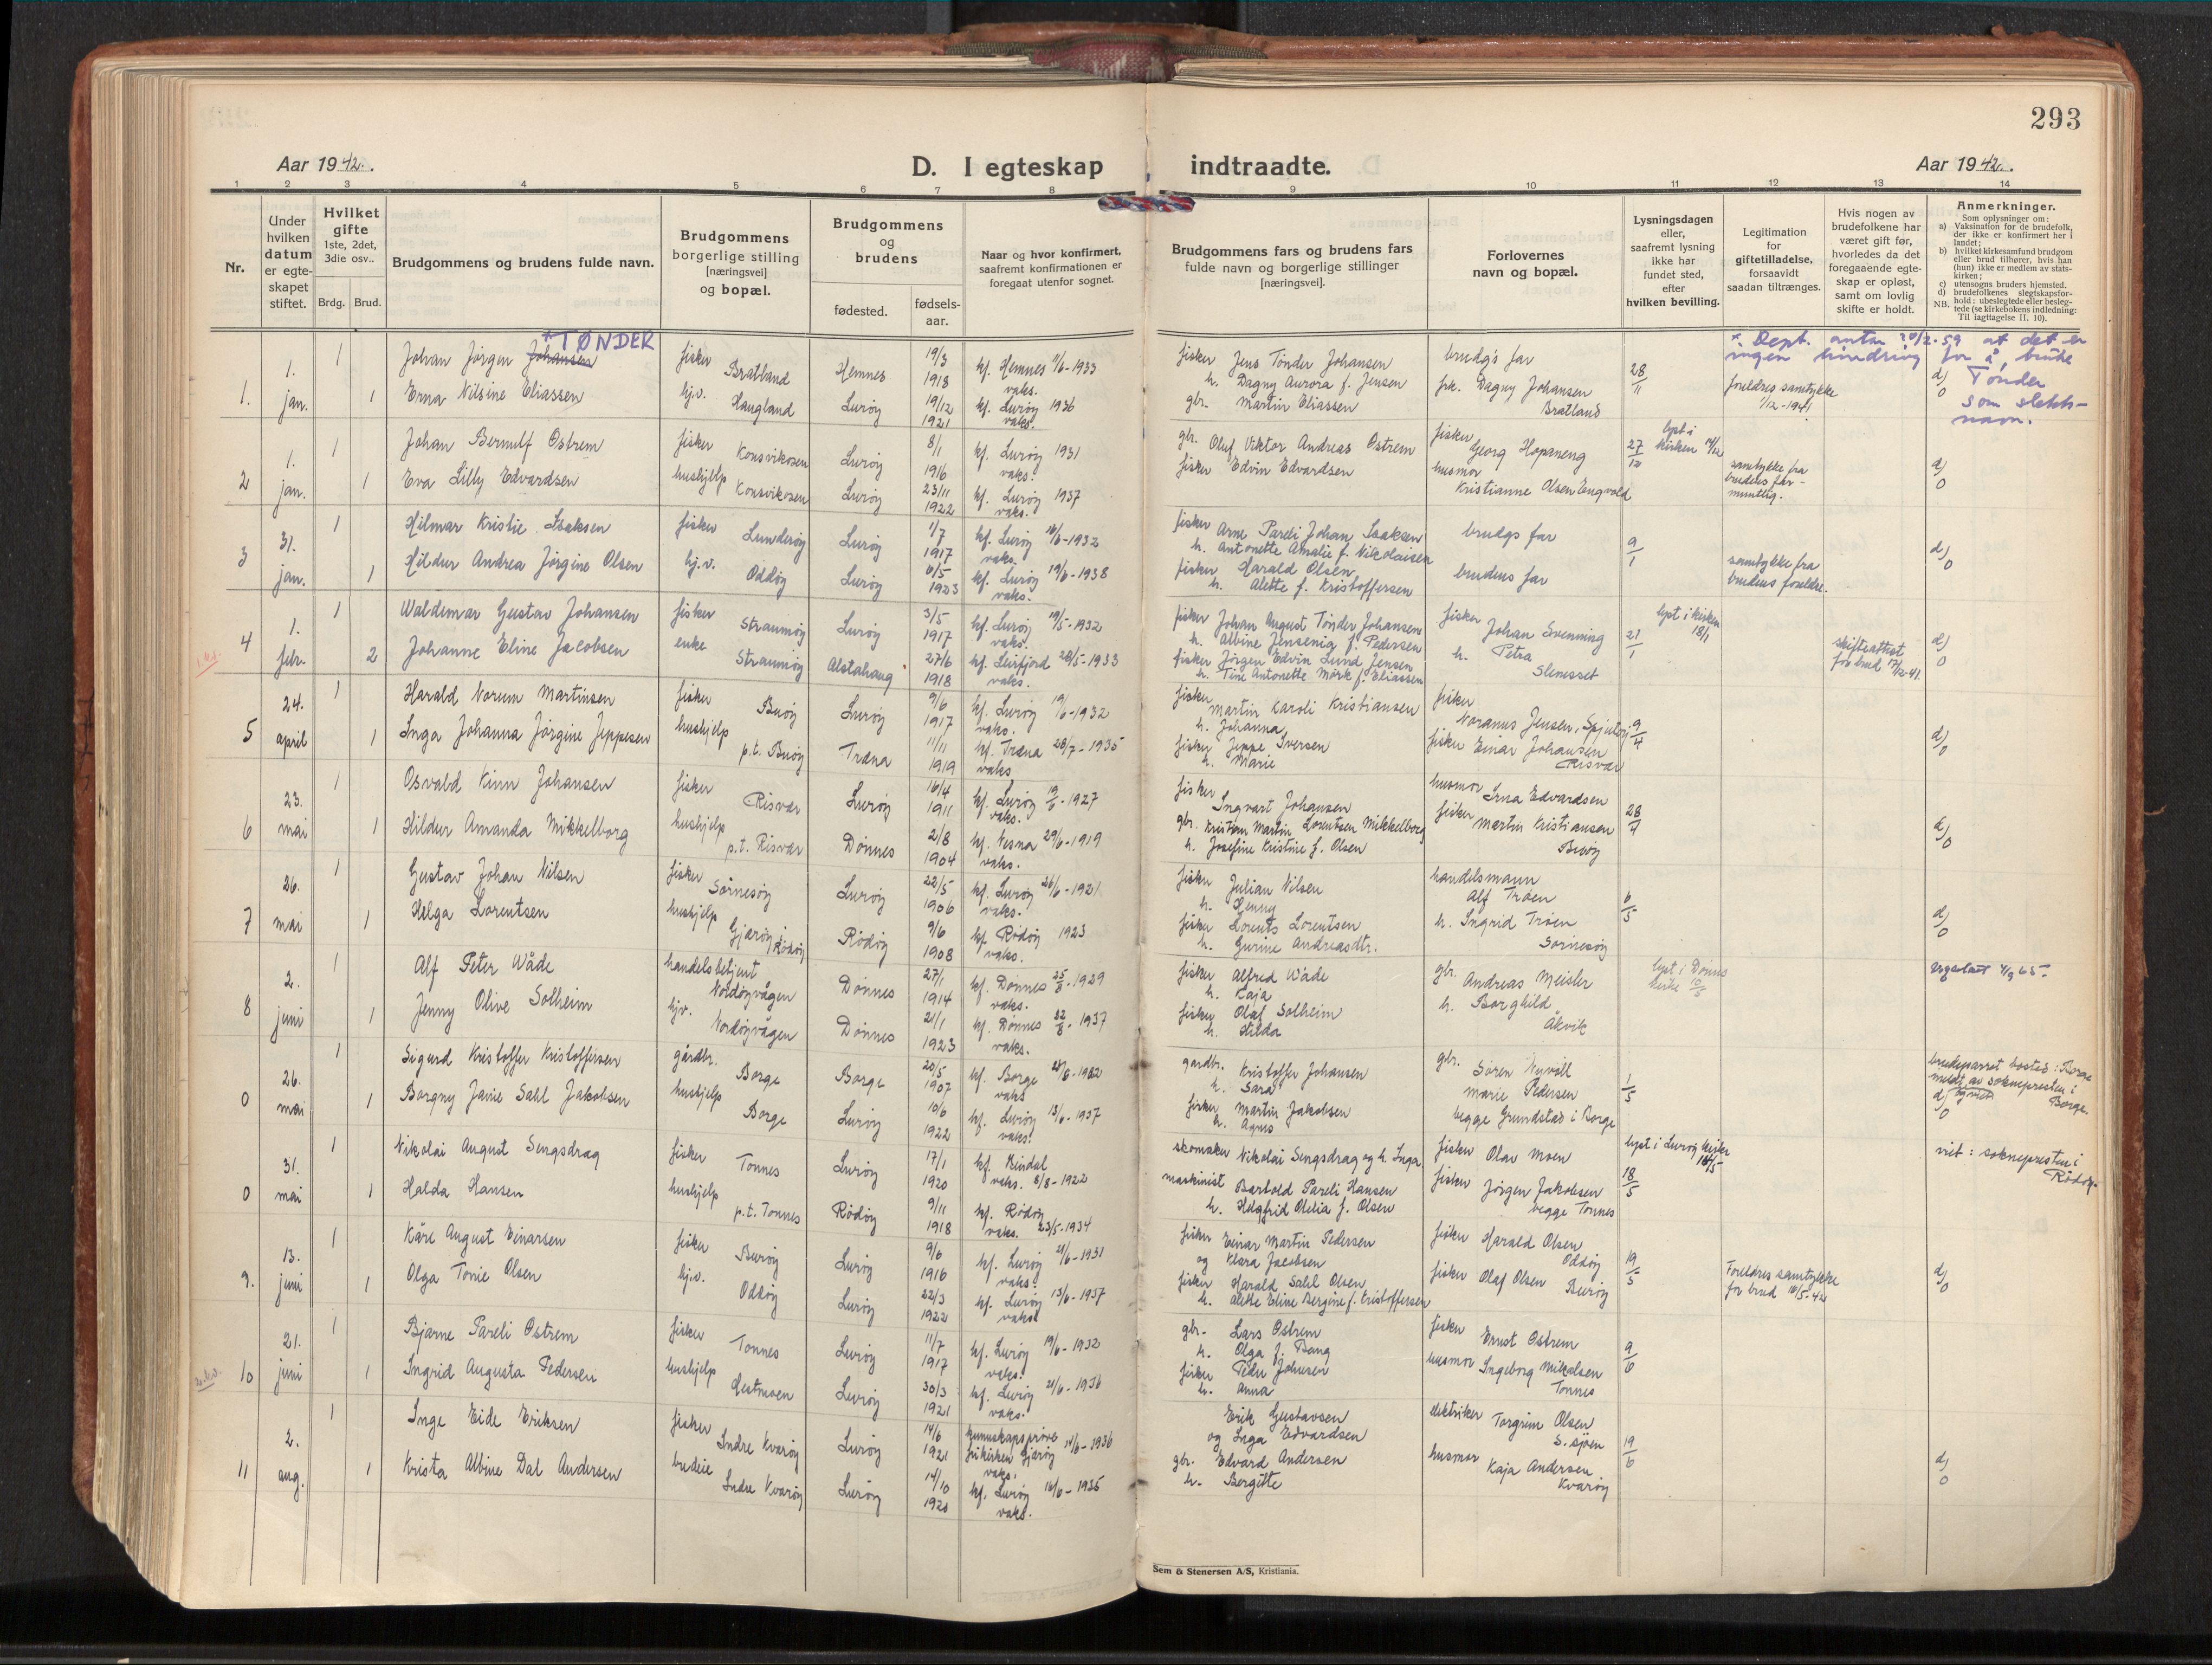 293
Aar 1942.
D. I egteskap indtraadte.
Aar 1942.
1 2 3 4 5 6 7 8 9 10 11 12 13 14
Nr.
Under hvilken datum er egteskapet stiftet.
Hvilket gifte 1ste, 2det, 3die osv..
Brdg. Brud.
Brudgommens og brudens fulde navn.
Brudgommens borgerlige stilling [næringsvei] og bopæl.
Brudgommens og brudens
fødested.
fødselsaar.
Naar og hvor konfirmert, saafremt konfirmationen er foregaat utenfor sognet.
Brudgommens fars og brudens fars fulde navn og borgerlige stillinger [næringsvei].
Forlovernes navn og bopæl.
Lysningsdagen eller, saafremt lysning ikke har fundet sted, efter hvilken bevilling.
Legitimation for giftetilladelse, forsaavidt saadan tiltrænges.
Hvis nogen av brudefolkene har været gift før, hvorledes da det foregaaende egteskap er opløst, samt om lovlig skifte er holdt.
Anmerkninger.
Som oplysninger om:
a) Vaksination for de brudefolk, der ikke er konfirmert her i landet;
b) hvilket kirkesamfund brudgom eller brud tilhører, hvis han (hun) ikke er medlem av statskirken;
c) utensogns bruders hjemsted.
d) brudefolkenes slegtskapsforhold: ubeslegtede eller beslegtede (se kirkebokens indledning:
NB. Til iagttagelse II. 10).
* TØNDER
* Dept. antar 20/2-59 at det er
ingen hindring for å bruke
Tønder
som slektsnavn.
1. 1. jan. 1 Johan Jørgen Johansen fisker Bratland Hemnes 19/3 1918 kf. Hemnes 11/6-1933 vaks.
1 Erna Nilsine Eliassen hj.v. Haugland Lurøy 19/12 1921 kf. Lurøy 1936 vaks.
fisker Jens Tønder Johansen
h. Dagny Aurora f. Jensen
gbr. Martin Eliassen
brudg's far
frk. Dagny Johansen Bratland
28/11
foreldres samtykke 1/12-1941
d) 0
2 1. jan. 1 Johan Bernulf Østrem fisker Konsvikosen Lurøy 8/1 1916 kf. Lurøy 1931 vaks.
1 Eva Lilly Edvardsen hushjelp Konsvikosen Lurøy 23/11 1922 kf. Lurøy 1937 vaks.
gbr. Oluf Viktor Andreas Østrem
fisker Edvin Edvardsen
fisker Georg Hopaneng
husmor Kristianne Olsen Engvold
27/12 lyst i kirken
samtykke fra brudens far - muntlig.
d) 0
3 31. jan. 1 Hilmar Kristie Isaksen fisker Lunderøy Lurøy 1/7 1917 kf. Lurøy 19/6-1932 vaks.
1 Hildur Andrea Jørgine Olsen hj.v. Oddøy Lurøy 6/5 1923 kf. Lurøy 19/6-1938 vaks.
fisker Arne Pareli Johan Isaksen
h. Antonette Amalie f. Nikolaisen
fisker Harald Olsen
h. Alette f. Kristoffersen
brudgs far
brudens far
9/1
samtykke fra brudens foreldre.
d) 0
4 1. febr. 1 Waldemar Gustav Johansen fisker Straumøy Lurøy 3/5 1917 kf. Lurøy 19/5-1932 vaks.
2 Johanne Eline Jacobsen enke Straumøy Alstahaug 27/6 1918 kf. Leirfjord 28/5-1933 vaks.
fisker Johan August Tønder Johansen
h. Albine Jensenig f. Pedersen
fisker Jørgen Edvin Lund Jensen
h. Tine Antonette Mørk f. Eliassen
fisker Johan Svenning
h. Petra Slenesset
21/1 lyst i kirken 18/1
skifteattest for brud 17/12-41.
d) 0
5 24. april 1 Harald Norum Martinsen fisker Buøy Lurøy 9/6 1917 kf. Lurøy 19/6-1932 vaks.
1 Inga Johanna Jørgine Jeppesen hushjelp p.t. Buøy Træna 11/11 1919 kf. Træna 28/7-1935 vaks
fisker Martin Karoli Kristiansen
h. Johanna
fisker Jeppe Iversen
h. Marie
fisker Noranus Jensen, Spjutøy
fisker Einar Johansen Risvær
9/4
d) 0
6 23. mai 1 Osvald Kinn Johansen fisker Risvær Lurøy 16/4 1911 kf. Lurøy 19/6-1927 vaks.
1 Hildur Amanda Mikkelborg hushjelp p.t. Risvær Dønnes 2/8 1904 kf. Nesna 29/6-1919 vaks.
fisker Ingvart Johansen
gbr. Kristian Martin Lorentsen Mikkelborg
h. Josefine Kristine f. Olsen
husmor Irna Edvardsen
fisker Martin Kristiansen Buøy
28/4
d) 0
7 26. mai 1 Gustav Johan Nilsen fisker Sørnesøy Lurøy 22/5 1906 kf. Lurøy 26/6-1921 vaks.
1 Helga Lorentsen hushjelp Gjærøy i Rødøy Rødøy 9/6 1908 kf. Rødøy 1923 vaks.
fisker Julian Nilsen
h. Henny
fisker Lorents Lorentsen
h. Gurine Andreasdtr.
handelsmann Alf Trøen
h. Ingrid Trøen Sørnesøy
6/5
d) 0
8 2. juni 1 Alf Peter Wåde handelsbetjent Nordøyvågen Dønnes 27/1 1914 kf. Dønnes 25/8-1929 vaks.
1 Jenny Olive Solheim hjv. Nordøyvågen Dønnes 21/1 1923 kf. Dønnes 22/8-1937 vaks.
fisker Alfred Wåde
h. Kaja
fisker Olaf Solheim
h. Hilda
gbr. Andreas Meisler
h. Borghild Åkvik
lyst i Dønnes kirke
0 26. mai 1 Sigurd Kristoffer Kristoffersen gårdbr. Borge Borge 20/5 1907 kf. Borge vaks
1 Borgny Janie Sahl Jakobsen hushjelp Borge Lurøy 10/6 1922 kf. Lurøy 13/6-1937 vaks.
gardbr. Kristoffer Johansen
h. Sara
fisker Martin Jakobsen
h. Agnes
gbr. Søren Nyvoll
Marie Pedersen
begge Grundstad i Borge
1/5
brudeparret bosted: Borge
meldt av sokneprest i Borge.
d) 0
0 31. mai 1 Nikolai August Sengsdrag fisker Tonnes Lurøy 17/1 1920 kf. Bindal vaks. 8/8-1922
1 Halda Hansen hushjelp p.t. Tonnes Rødøy 9/11 1918 kf. Rødøy vaks. 23/5-1934
skomaker Nikolai Sengsdrag og h. Inga
maskinist Barthold Pareli Hansen
h. Helgfrid Otelia f. Olsen
fisker Olav Moen
fisker Jørgen Jakobsen begge Tonnes
lyst i Lurøy kirke
18/5
viet: soknepresten i Rødøy.
9. 13. juni 1 Kåre August Einarsen fisker Burøy Lurøy 9/6 1916 kf. Lurøy 21/6-1931 vaks.
1 Olga Tonie Olsen hj.v. Oddøy Lurøy 22/3 1922 kf. Lurøy 13/6-1937 vaks
fisker Einar Martin Pedersen
og Klara Jacobsen
fisker Harald Sahl Olsen
h. Alette Eline Bergine f. Kristoffersen
fisker Harald Olsen Oddøy
fisker Olaf Olsen Burøy
19/5
Foreldres samtykke for brud 10/5-42
d) 0
10 21. juni 1 Bjarne Pareli Østrem fisker Tonnes Lurøy 11/7 1917 kf. Lurøy 19/6-1932 vaks.
1 Ingrid Augusta Pedersen hushjelp Hestmoen Lurøy 30/3 1921 kf. Lurøy 21/6-1936 vaks.
gbr. Lars Østrem
h. Olga f. Bang
fisker Peder Johnsen
h. Anna
fisker Ernst Østrem
husmor Ingeborg Mikalsen Tonnes
9/6
11 2. aug. 1 Inge Eide Eriksen fisker Indre Kvarøy Lurøy 14/6 1921 kunnskapsprøve frikirken Gjærøy 14/6-1936 vaks.
1 Krista Albine Dal Andersen budeie Indre Kvarøy Lurøy 14/10 1920 kf. Lurøy 16/6-1935 vaks.
Erik Gustavsen
og Inga Edvardsen
gbr. Edvard Andersen
h. Bergitte
elektriker Torgrim Olsen S.sjøen
husmor Kaja Andersen Kvarøy
19/6
d) 0
Sem & Stenersen A/S, Kristiania.